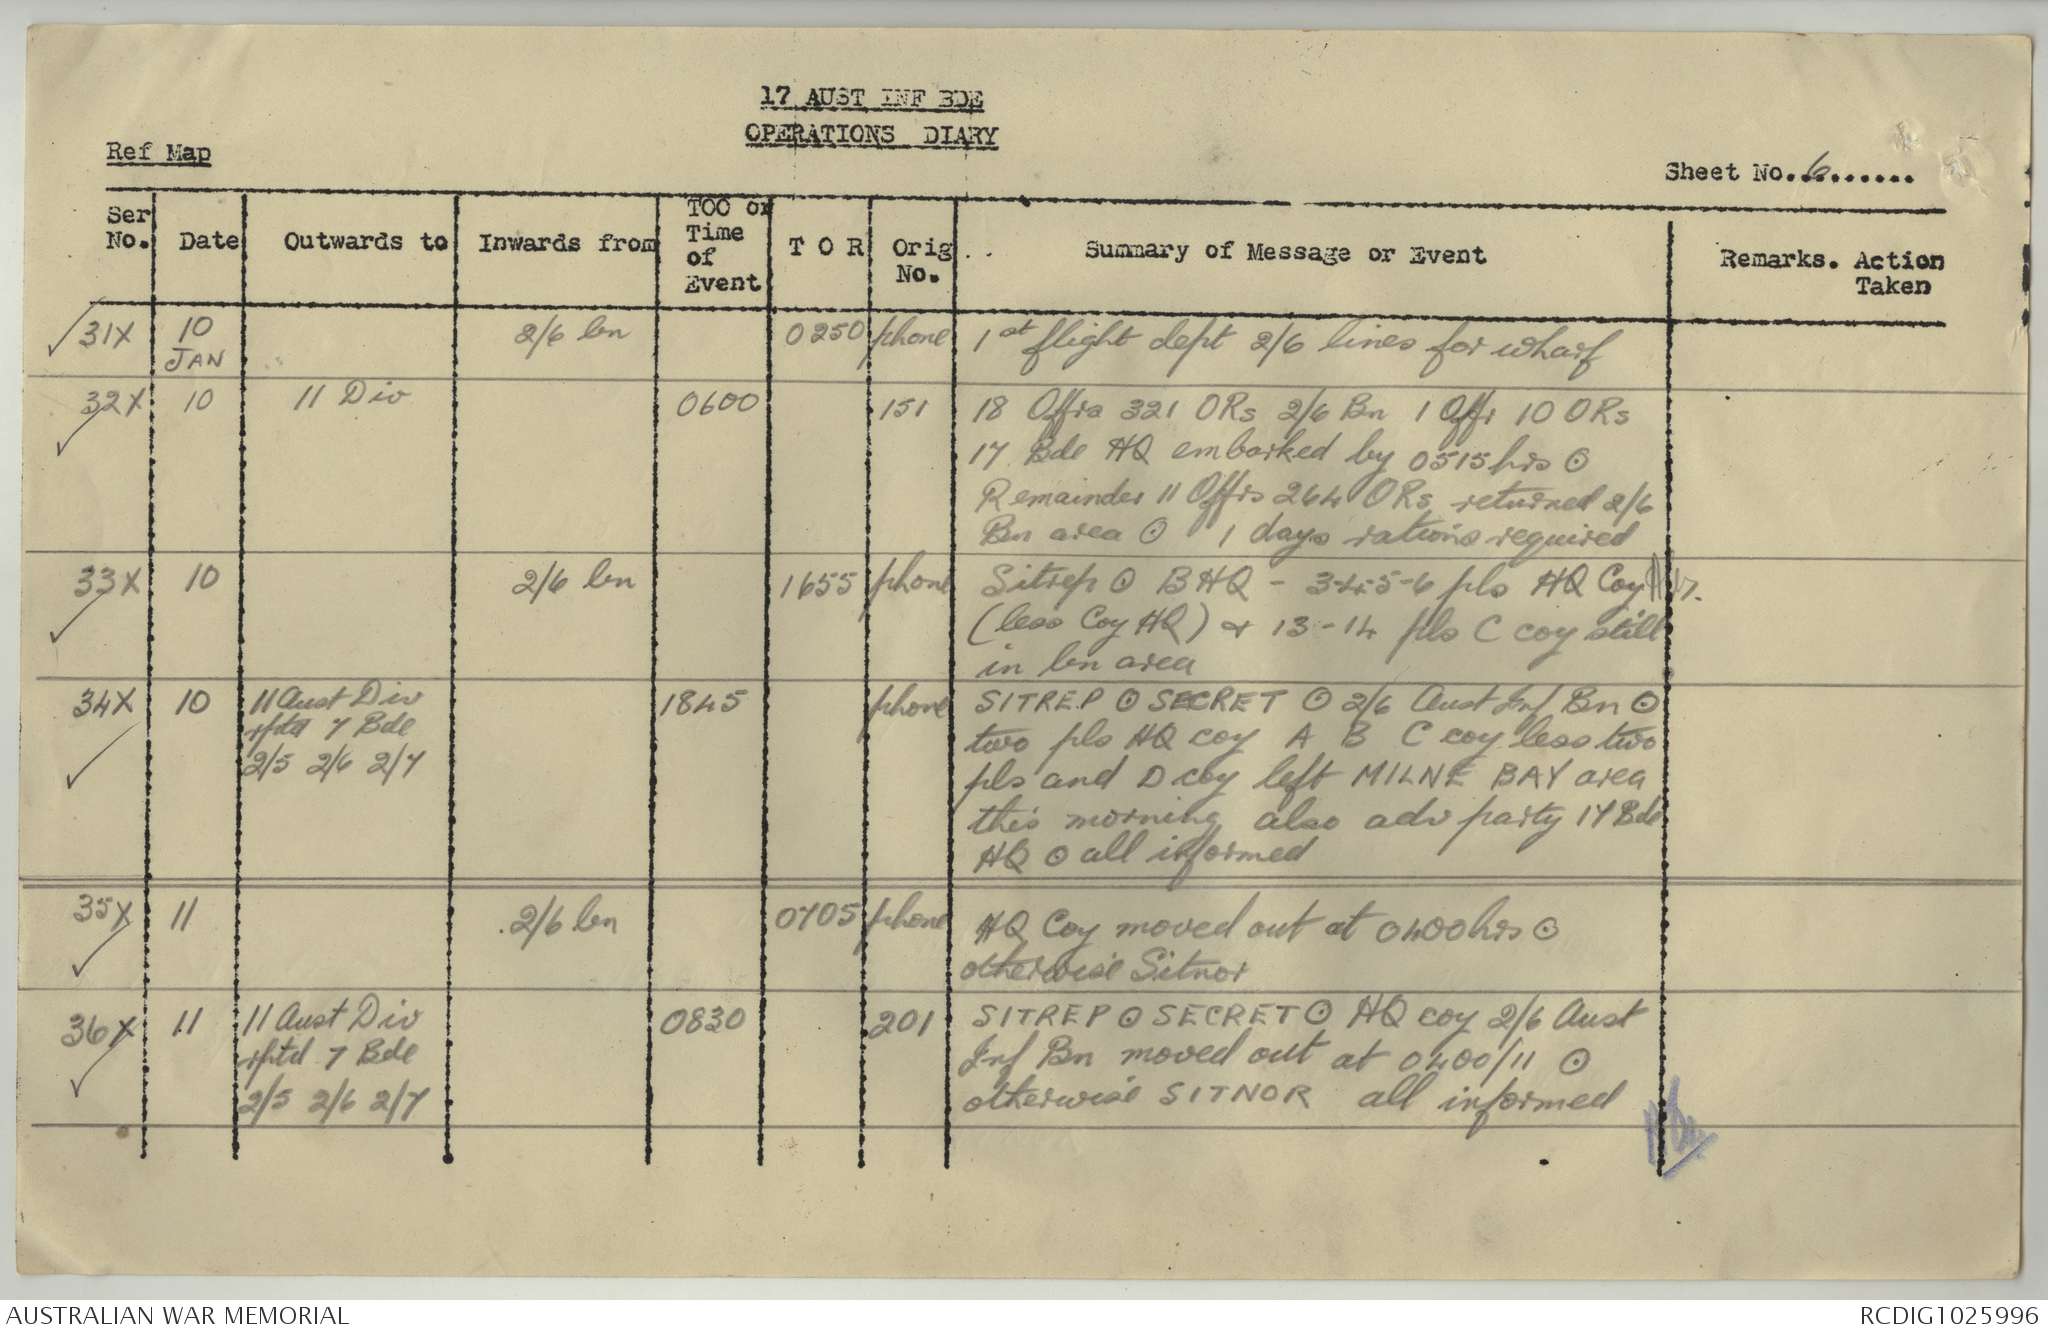 17 AUST INF BDE
OPERATIONS DIARY
Ref Map
Sheet No. 6
Ser No. Date Outwards to Inwards from TOO or Time of Event T O R Orig No. Summary of Message or Event Remarks. Action Taken
31X 10 JAN 2/6 bn 0250 phone 1st flight dept 2/6 lines for wharf
32X 10 11 Div 0600 151 18 Offrs 321 ORs 2/6 Bn 1 Offr 10 ORs
17 Bde HQ embarked by 0515 hrs ⊙
Remainder 11 Offrs 264 ORs returned 2/6
Bn area ⊙ 1 days rations required
33X 10 2/6 bn 1655 phone Sitrep ⊙ BHQ - 3-4-5-6 pls HQ Coy
(less Coy HQ) & 13-14 pls C coy still
in bn area
34X 10 11 Aust Div 1845 phone SITREP ⊙ SECRET ⊙ 2/6 Aust Inf Bn ⊙
rptd 7 Bde two pls HQ coy A B C coy less two
2/5 2/6 2/7 pls and D coy left MILNE BAY area
this morning also adv party 17 Bde
HQ ⊙ all informed
35X 11 2/6 bn 0705 phone HQ Coy moved out at 0400 hrs ⊙
otherwise Sitnor
36X 11 11 Aust Div 0830 201 SITREP ⊙ SECRET ⊙ HQ coy 2/6 Aust
rptd 7 Bde Inf Bn moved out at 0400/11 ⊙
2/5 2/6 2/7 otherwise SITNOR all informed
AUSTRALIAN WAR MEMORIAL
RCDIG1025996